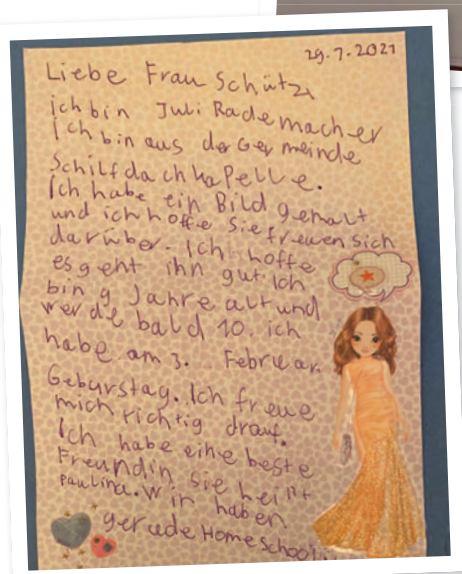 29.7.2021
Liebe Frau Schütz,
ich bin Juli Rademacher
Ich bin aus der Gemeinde
Schilfdachkapelle.
Ich habe ein Bild gemalt
und ich hoffe Sie freuen sich
darüber. Ich hoffe
es geht ihn gut. Ich
bin 9 Jahre alt und
werde bald 10. ich
habe am 3. Februar.
Geburstag. Ich freue
mich richtig drauf.
Ich habe eine beste
Freundin sie heißt
Paulina. Wir haben
gerade Homeschool